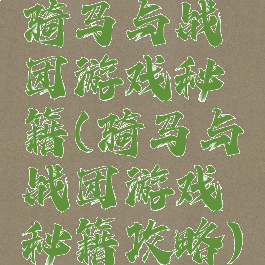 骑马与战
团游戏秘
籍(骑马与
战团游戏
秘籍攻略)